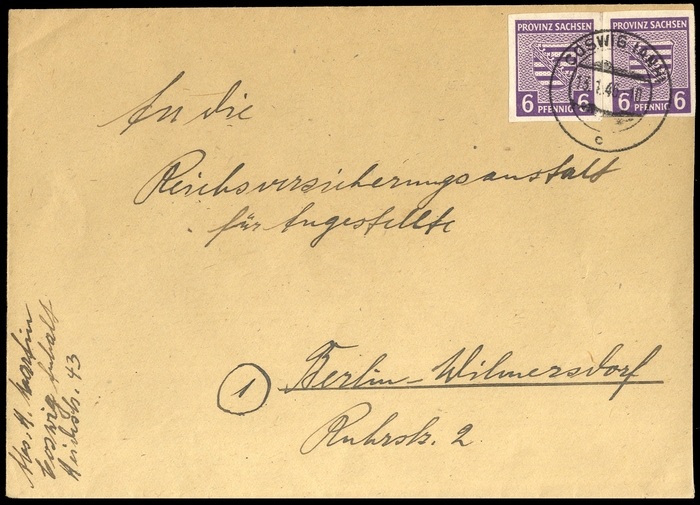 PROVINZ SACHSEN
6 6
PFENNIG
PROVINZ SACHSEN
6 6
PFENNIG
COSWIG (ANH)
c
An die
Reichsversicherungsanstalt
für Angestellte
1 Berlin-Wilmersdorf
Ruhrstr. 2.
Abs. A. Martin
Coswig Anhalt